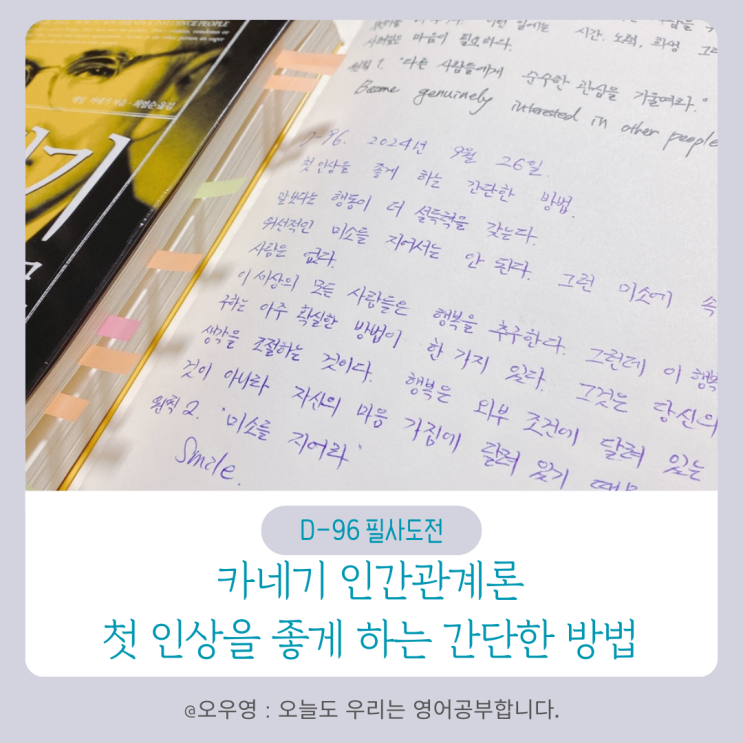 INFLUENCE PEOPLE
데일 카네기 지음 · 최염순 옮김
기
시간, 노력, 희생 그리
사려깊은 마음이 필요하다.
원칙 1. "다른 사람들에게 순수한 관심을 기울여라."
Become genuinely interested in other people
D-96. 2024년 9월 26일.
첫인상을 좋게 하는 간단한 방법.
말보다는 행동이 더 설득력을 갖는다.
위선적인 미소를 지어서는 안 된다. 그런 미소에 속
사람은 없다.
이 세상의 모든 사람들은 행복을 추구한다. 그런데 이 행복
구하는 아주 확실한 방법이 한 가지 있다. 그것은 당신의
생각을 조절하는 것이다. 행복은 외부 조건에 달려 있는
것이 아니라 자신의 마음 가짐에 달려 있기 때문
원칙 2. '미소를 지어라'
Smile.
D-96 필사도전
카네기 인간관계론
첫 인상을 좋게 하는 간단한 방법
@오우영 : 오늘도 우리는 영어공부합니다.